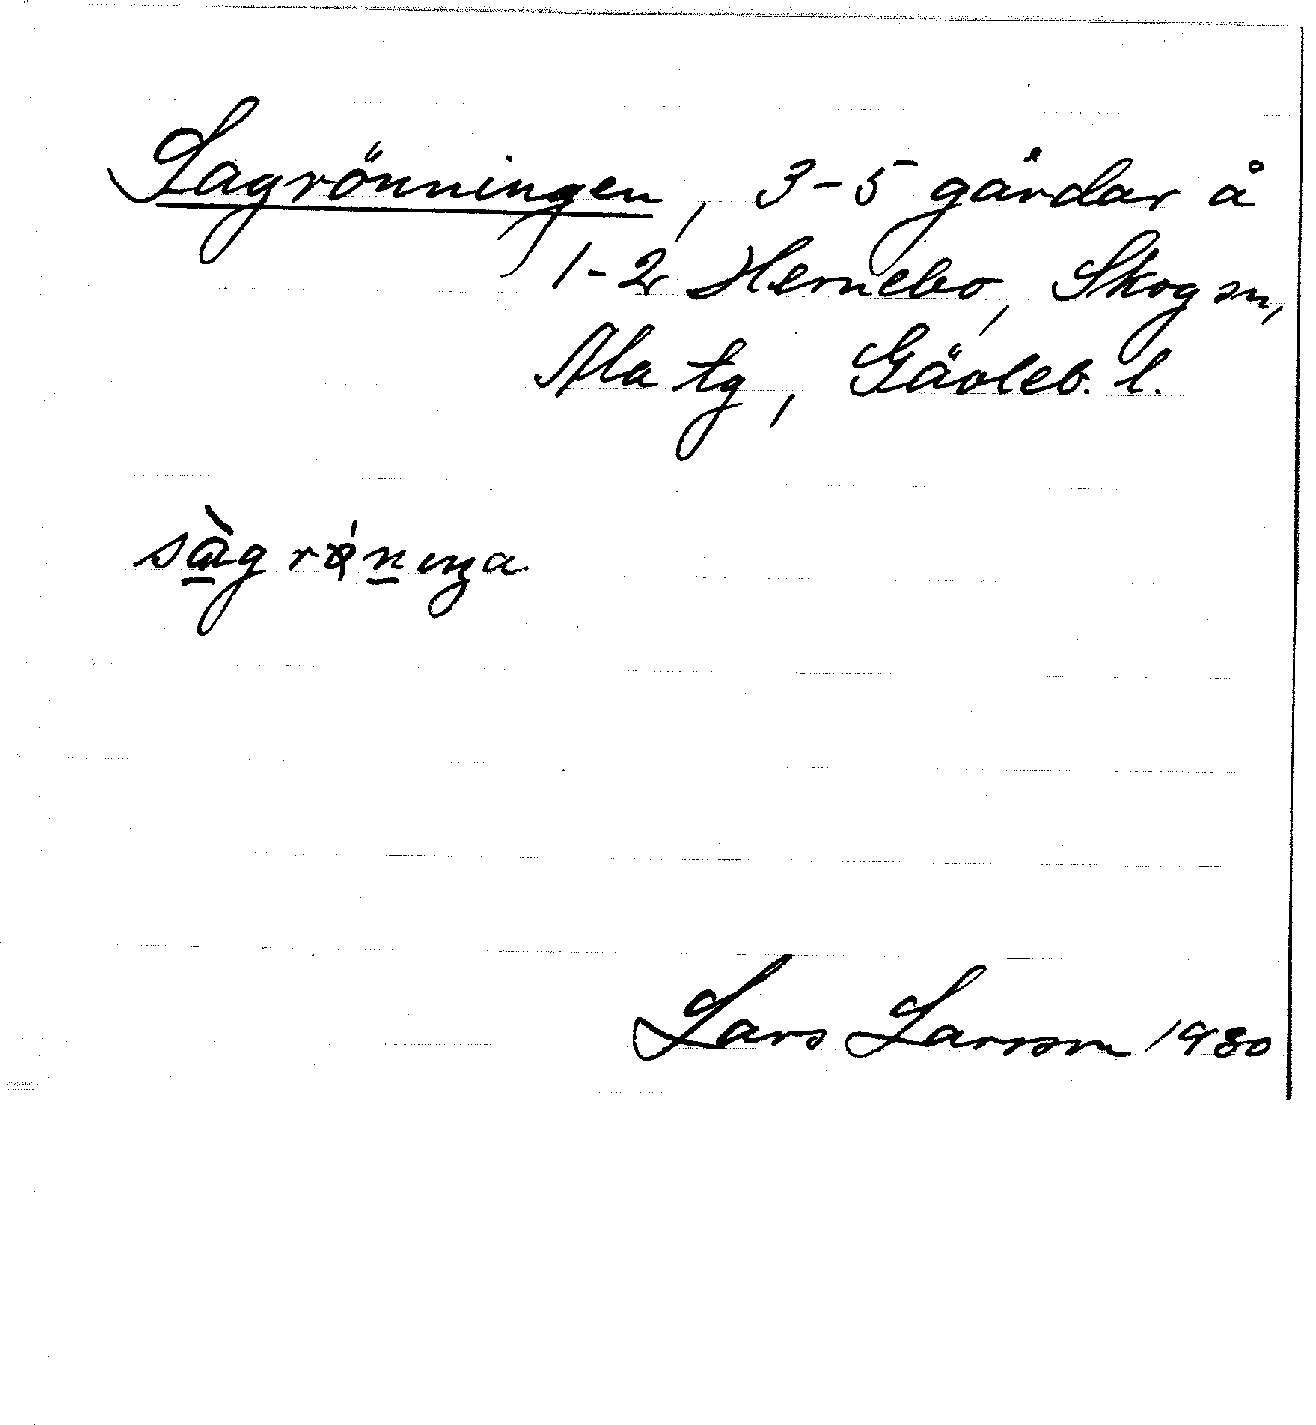 Sagrönningen, 3-5 gårdar å
1-2 Hernebo, Skog sn,
Ala tg, Gävleb. l.
sàgrǿnıŋa
Lars Larsson 1930